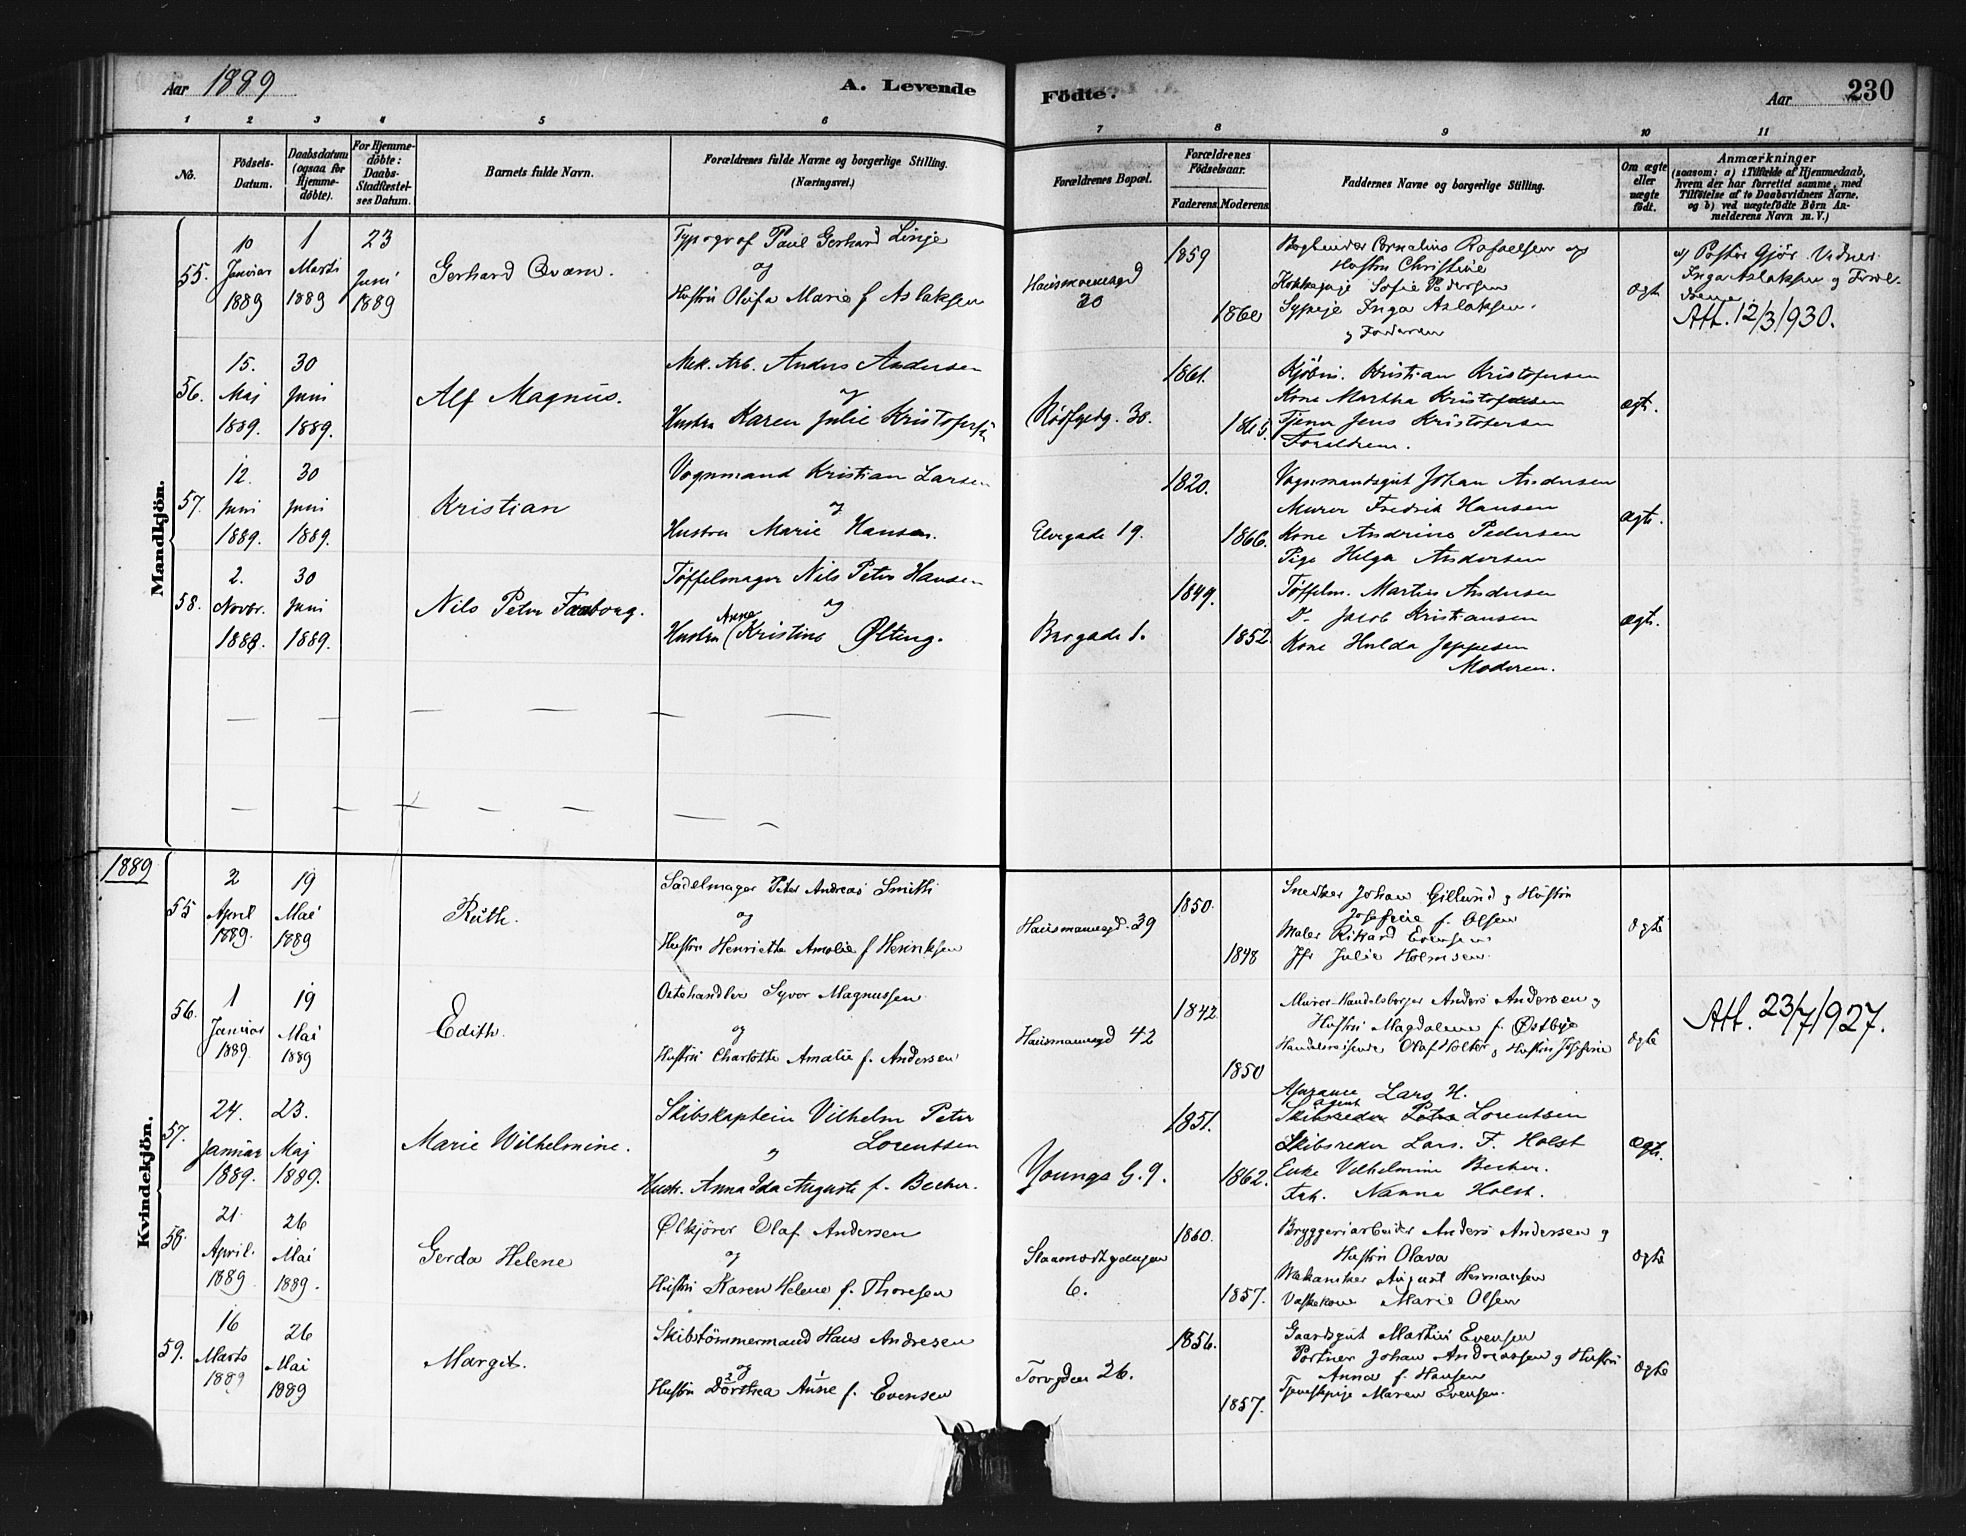 Aar 1889
A. Levende
Födte.
Aar
230
1 2 3 4 5 6 7 8 9 10 11
No.
Födsels-
Datum.
Daabsdatum
(ogsaa for
Hjemme-
döbte).
For Hjemme-
döbte:
Daabs-
Stadfæstel-
ses Datum.
Barnets fulde Navn.
Forældrenes fulde Navne og borgerlige Stilling.
(Næringsvei.)
Forældrenes Bopæl.
Forældrenes
Födselsaar.
Faderens.
Moderens.
Faddernes Navne og borgerlige Stilling.
Om ægte
eller
uægte
födt.
Anmærkninger
(saasom: a) i Tilfælde af Hjemmedaab,
hvem der har forrettet samme, med
Tilföielse af to Daabsvidners Navne,
og b) ved uægtefödte Börn An-
melderens Navn m. V.)
Mandkjön.
55.
10
Januar
1889
1
Marts
1889
23
Juni
1889
Gerhard Qværn.
Typograf Paul Gerhard Linje
og
Hustru Olufa Marie f Aslaksen
Hausmannsgd
20
1859
Bogbinder Cornelius Rafaelsen og
Hustru Christine
Kokkepige Sofie Pedersen
Sypige Inga Aslaksen.
g Faderen
ægte
a) Pastor Gjør. Vidner
Inga Aslaksen g Foræl-
drene
Att. 12/3 1930.
56.
15.
Maj
1889.
30
Juni
1889.
Alf Magnus.
Mek. Arb. Anders Andersen
og
Hustru Karen Julie Kristofersen
Rødfyldg. 38.
1861.
1865.
Kjøbm. Kristian Kristofersen
Kone Martha Kristofersen
Tjener Jens Kristofersen
Forældrene.
ægte.
57.
12.
Juni
1889.
30
Juni
1889.
Kristian
Vognmand Kristian Larsen
og
Hustru Marie Hansen.
Elvegade 19.
1820.
1866.
Vognmandsgut Johan Andersen
Murer Fredrik Hansen
Kone Andrine Pedersen
Pige Helga Andersen
ægte.
58.
2.
Novbr.
1888.
30
Juni
1889.
Nils Peter Faaborg.
Tøffelmager Nils Peter Hansen
og
Anne
Hustru (Kristine Ølting.
Brogade 1.
1849.
1852.
Tøffelm. Martin Andersen
D. Jacob Kristiansen
Kone Hulda Jeppesen
Moderen.
ægte.
1889
Kvindekjön.
55
2
April
1889.
19
Mai
1889
Ruth.
Sadelmager Peter Andreas Smith
og
Hustru Henriette Amalie f Henriksen
Hausmannsgd. 39
1850.
1848
Snedker Johan Gillund g Hustru
Josefine f. Olsen
Maler Rikard Evensen
Jfr Julie Holmsen.
ægte
56.
1
Januar
1889.
19
Mai
1889
Edith.
Ostehandler Syver Magnussen
og
Hustru Charlotte Amalie f. Andersen
Hausmannsgd 42
1842
1850
Murer-Handelsborger Anders Andersen g
Hustru Magdalene f. Østbye
Handelsreisende Olaf Holter g Hustru Josefine
ægte
Att. 23/7 1927.
57.
24.
Januar
1889.
23.
Maj
1889.
Marie Wilhelmine.
Skibskaptein Vilhelm Peter
Lorentsen
og
Hustr. Anna Ida Auguste f. Becker.
Youngs G. 9.
1851.
1862.
Assurance Lars H.
agent
Skibsreder Peter Lorentsen
Skibsreder Lars. F. Holst
Enke Vilhelmine Becker.
Frk. Nanna Holst.
ægte.
58.
21.
April.
1889
26
Mai
1889.
Gerda Helene
Ølkjører Olaf Andersen
og
Hustru Karen Helene f. Thoresen
6.
1860.
1857.
Bryggeriarbeider Anders Andersen g
Hustru Olava
Mekaniker August Hermansen
Vaskekone Marie Olsen
ægte
59.
16
Marts
1889
26
Mai
1889
Margit.
Skibstømmermand Hans Andresen
og
Hustru Dorthea Anne f. Evensen
Torvgden 26.
1856.
1857.
Gaardsgut Martin Evensen
Portner Johan Andreassen g Hustru
Anna f. Hansen
Tjenestepige Maren Evensen.
ægte